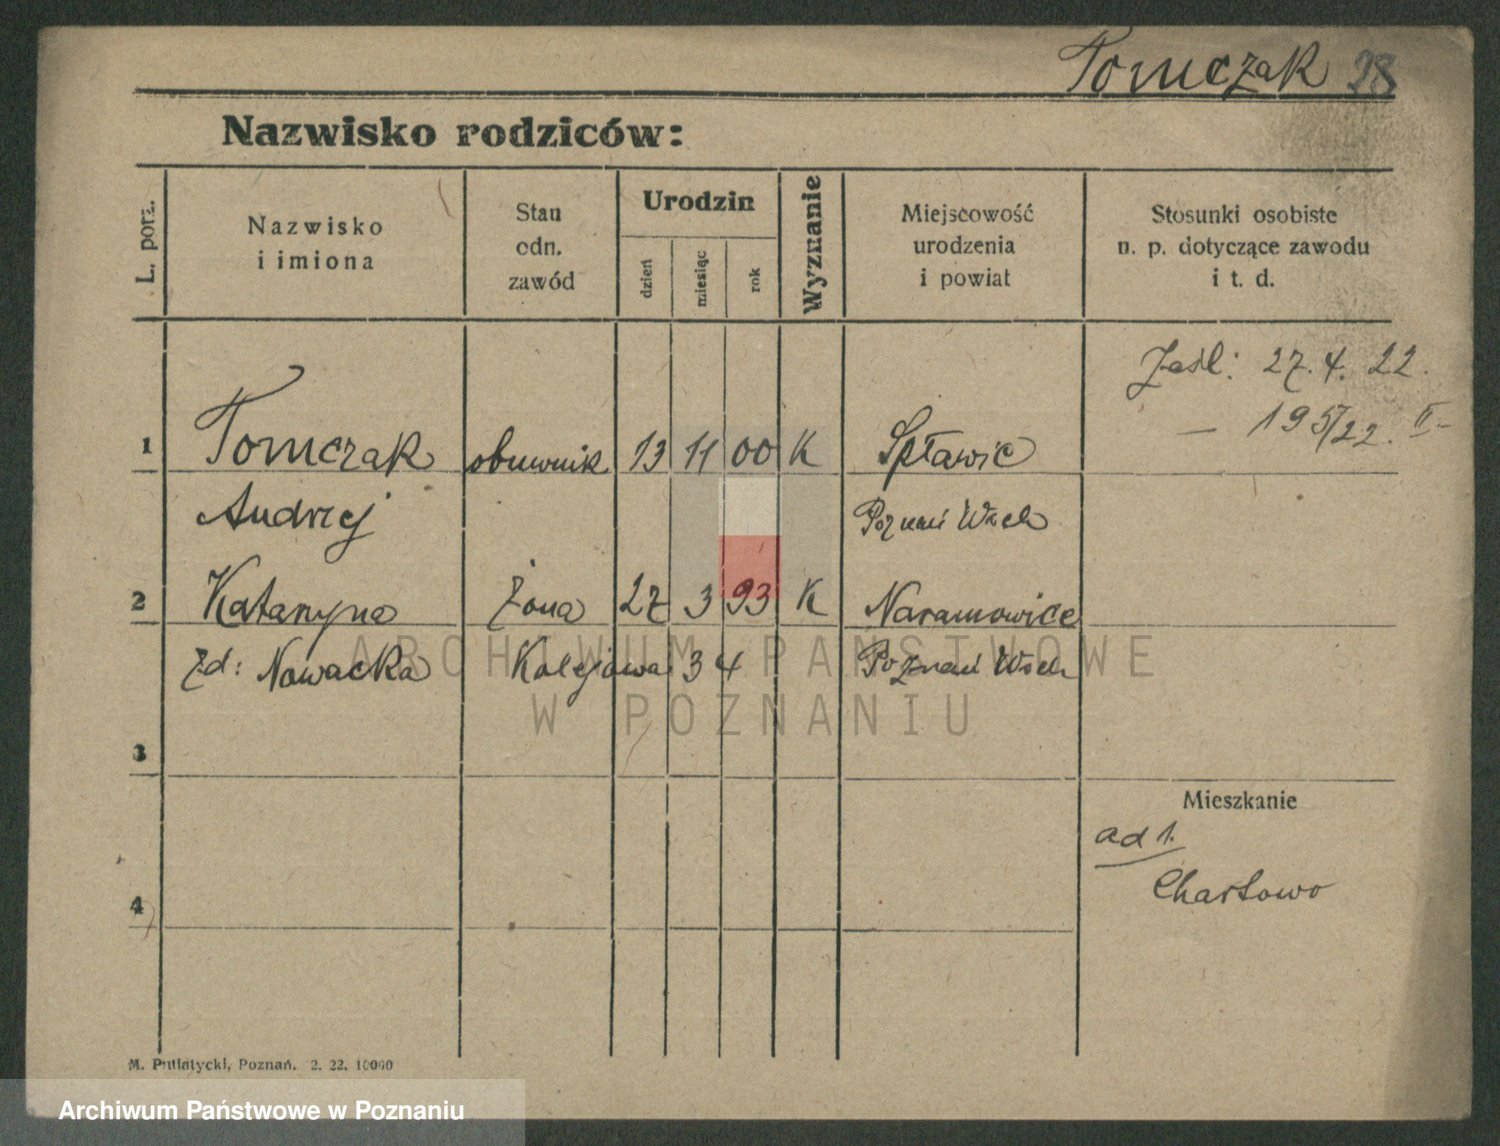 Tomczak 28
Nazwisko rodziców:
L. porz.
Nazwisko
i imiona
Stan
odn.
zawód
Urodzin
dzień
miesiąc
rok
Wyznanie
Miejscowość
urodzenia
i powiat
Stosunki osobiste
n. p. dotyczące zawodu
i t. d.
27. 4. 22.
— 195/22. II-
1 Tomczak obuwnik 13 11 00 K Spławie
Andrzej Poznań Wsch
2 Katarzyna żona 27 3 93 K Naramowice
zd: Nowacka Kolejowa 34 Poznań Wsch
ARCHIWUM PAŃSTWOWE
W POZNANIU
3
Mieszkanie
ad 1.
Chartowo
4
M. Putiatycki, Poznań. 2. 22. 10000
Archiwum Państwowe w Poznaniu